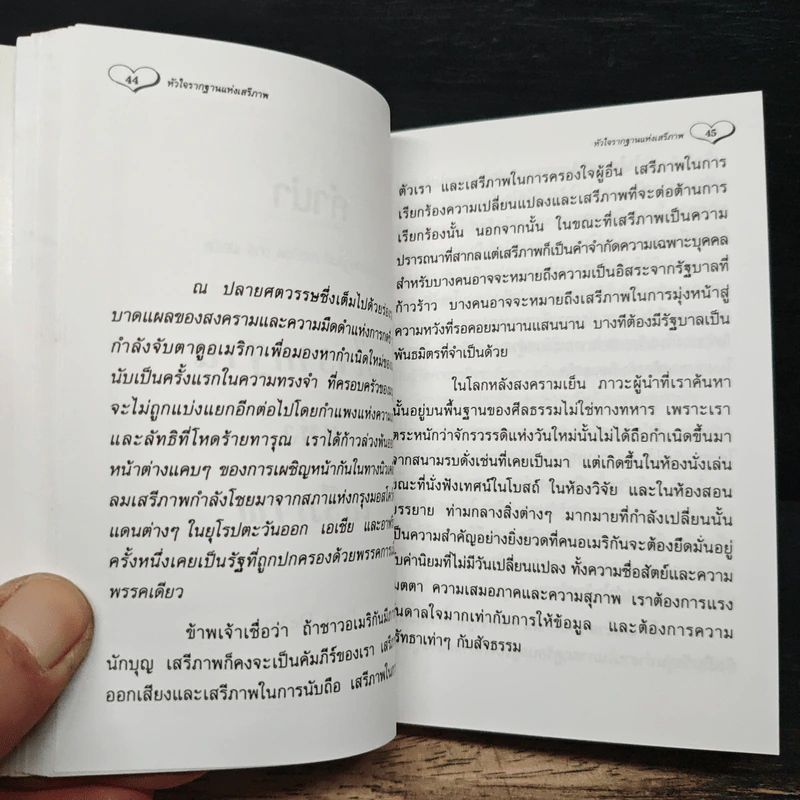 44
หัวใจรากฐานแห่งเสรีภาพ
ณ ปลายศตวรรษซึ่งเต็มไปด้วย
บาดแผลของสงครามและความมืดดำแห่งการ
กำลังจับตาดูอเมริกาเพื่อมองหากำเนิดใหม่ของ
นับเป็นครั้งแรกในความทรงจำ ที่ครอบครัวของ
จะไม่ถูกแบ่งแยกอีกต่อไปโดยกำแพงแห่งความ
และลัทธิที่โหดร้ายทารุณ เราได้ก้าวล่วงพ้น
หน้าต่างแคบๆ ของการเผชิญหน้ากันในทาง
ลมเสรีภาพกำลังโชยมาจากสภาแห่งกรุงมอสโคว์
แดนต่างๆ ในยุโรปตะวันออก เอเชีย และ
ครั้งหนึ่งเคยเป็นรัฐที่ถูกปกครองด้วยพรรค
พรรคเดียว
ข้าพเจ้าเชื่อว่า ถ้าชาวอเมริกันมี
นักบุญ เสรีภาพก็คงจะเป็นคัมภีร์ของเรา
ออกเสียงและเสรีภาพในการนับถือ เสรีภาพใน
หัวใจรากฐานแห่งเสรีภาพ
45
ตัวเรา และเสรีภาพในการครองใจผู้อื่น เสรีภาพในการ
เรียกร้องความเปลี่ยนแปลงและเสรีภาพที่จะต่อต้านการ
เรียกร้องนั้น นอกจากนั้น ในขณะที่เสรีภาพเป็นความ
ปรารถนาที่สากลแต่เสรีภาพก็เป็นคำจำกัดความเฉพาะบุคคล
สำหรับบางคนอาจจะหมายถึงความเป็นอิสระจากรัฐบาลที่
ก้าวร้าว บางคนอาจจะหมายถึงเสรีภาพในการมุ่งหน้าสู่
ความหวังที่รอคอยมานานแสนนาน บางทีต้องมีรัฐบาลเป็น
พันธมิตรที่จำเป็นด้วย
ในโลกหลังสงครามเย็น ภาวะผู้นำที่เราค้นหา
นั้นอยู่บนพื้นฐานของศีลธรรมไม่ใช่ทางทหาร เพราะเรา
ตระหนักว่าจักรวรรดิแห่งวันใหม่นั้นไม่ได้ถือกำเนิดขึ้นมา
จากสนามรบดั่งเช่นที่เคยเป็นมา แต่เกิดขึ้นในห้องนั่งเล่น
ขณะที่นั่งฟังเทศน์ในโบสถ์ ในห้องวิจัย และในห้องสอน
บรรยาย ท่ามกลางสิ่งต่างๆ มากมายที่กำลังเปลี่ยนนั้น
เป็นความสำคัญอย่างยิ่งยวดที่คนอเมริกันจะต้องยึดมั่นอยู่
ับค่านิยมที่ไม่มีวันเปลี่ยนแปลง ทั้งความซื่อสัตย์และความ
มตตา ความเสมอภาคและความสุภาพ เราต้องการแรง
ันดาลใจมากเท่ากับการให้ข้อมูล และต้องการความ
รัทธาเท่าๆ กับสัจธรรม